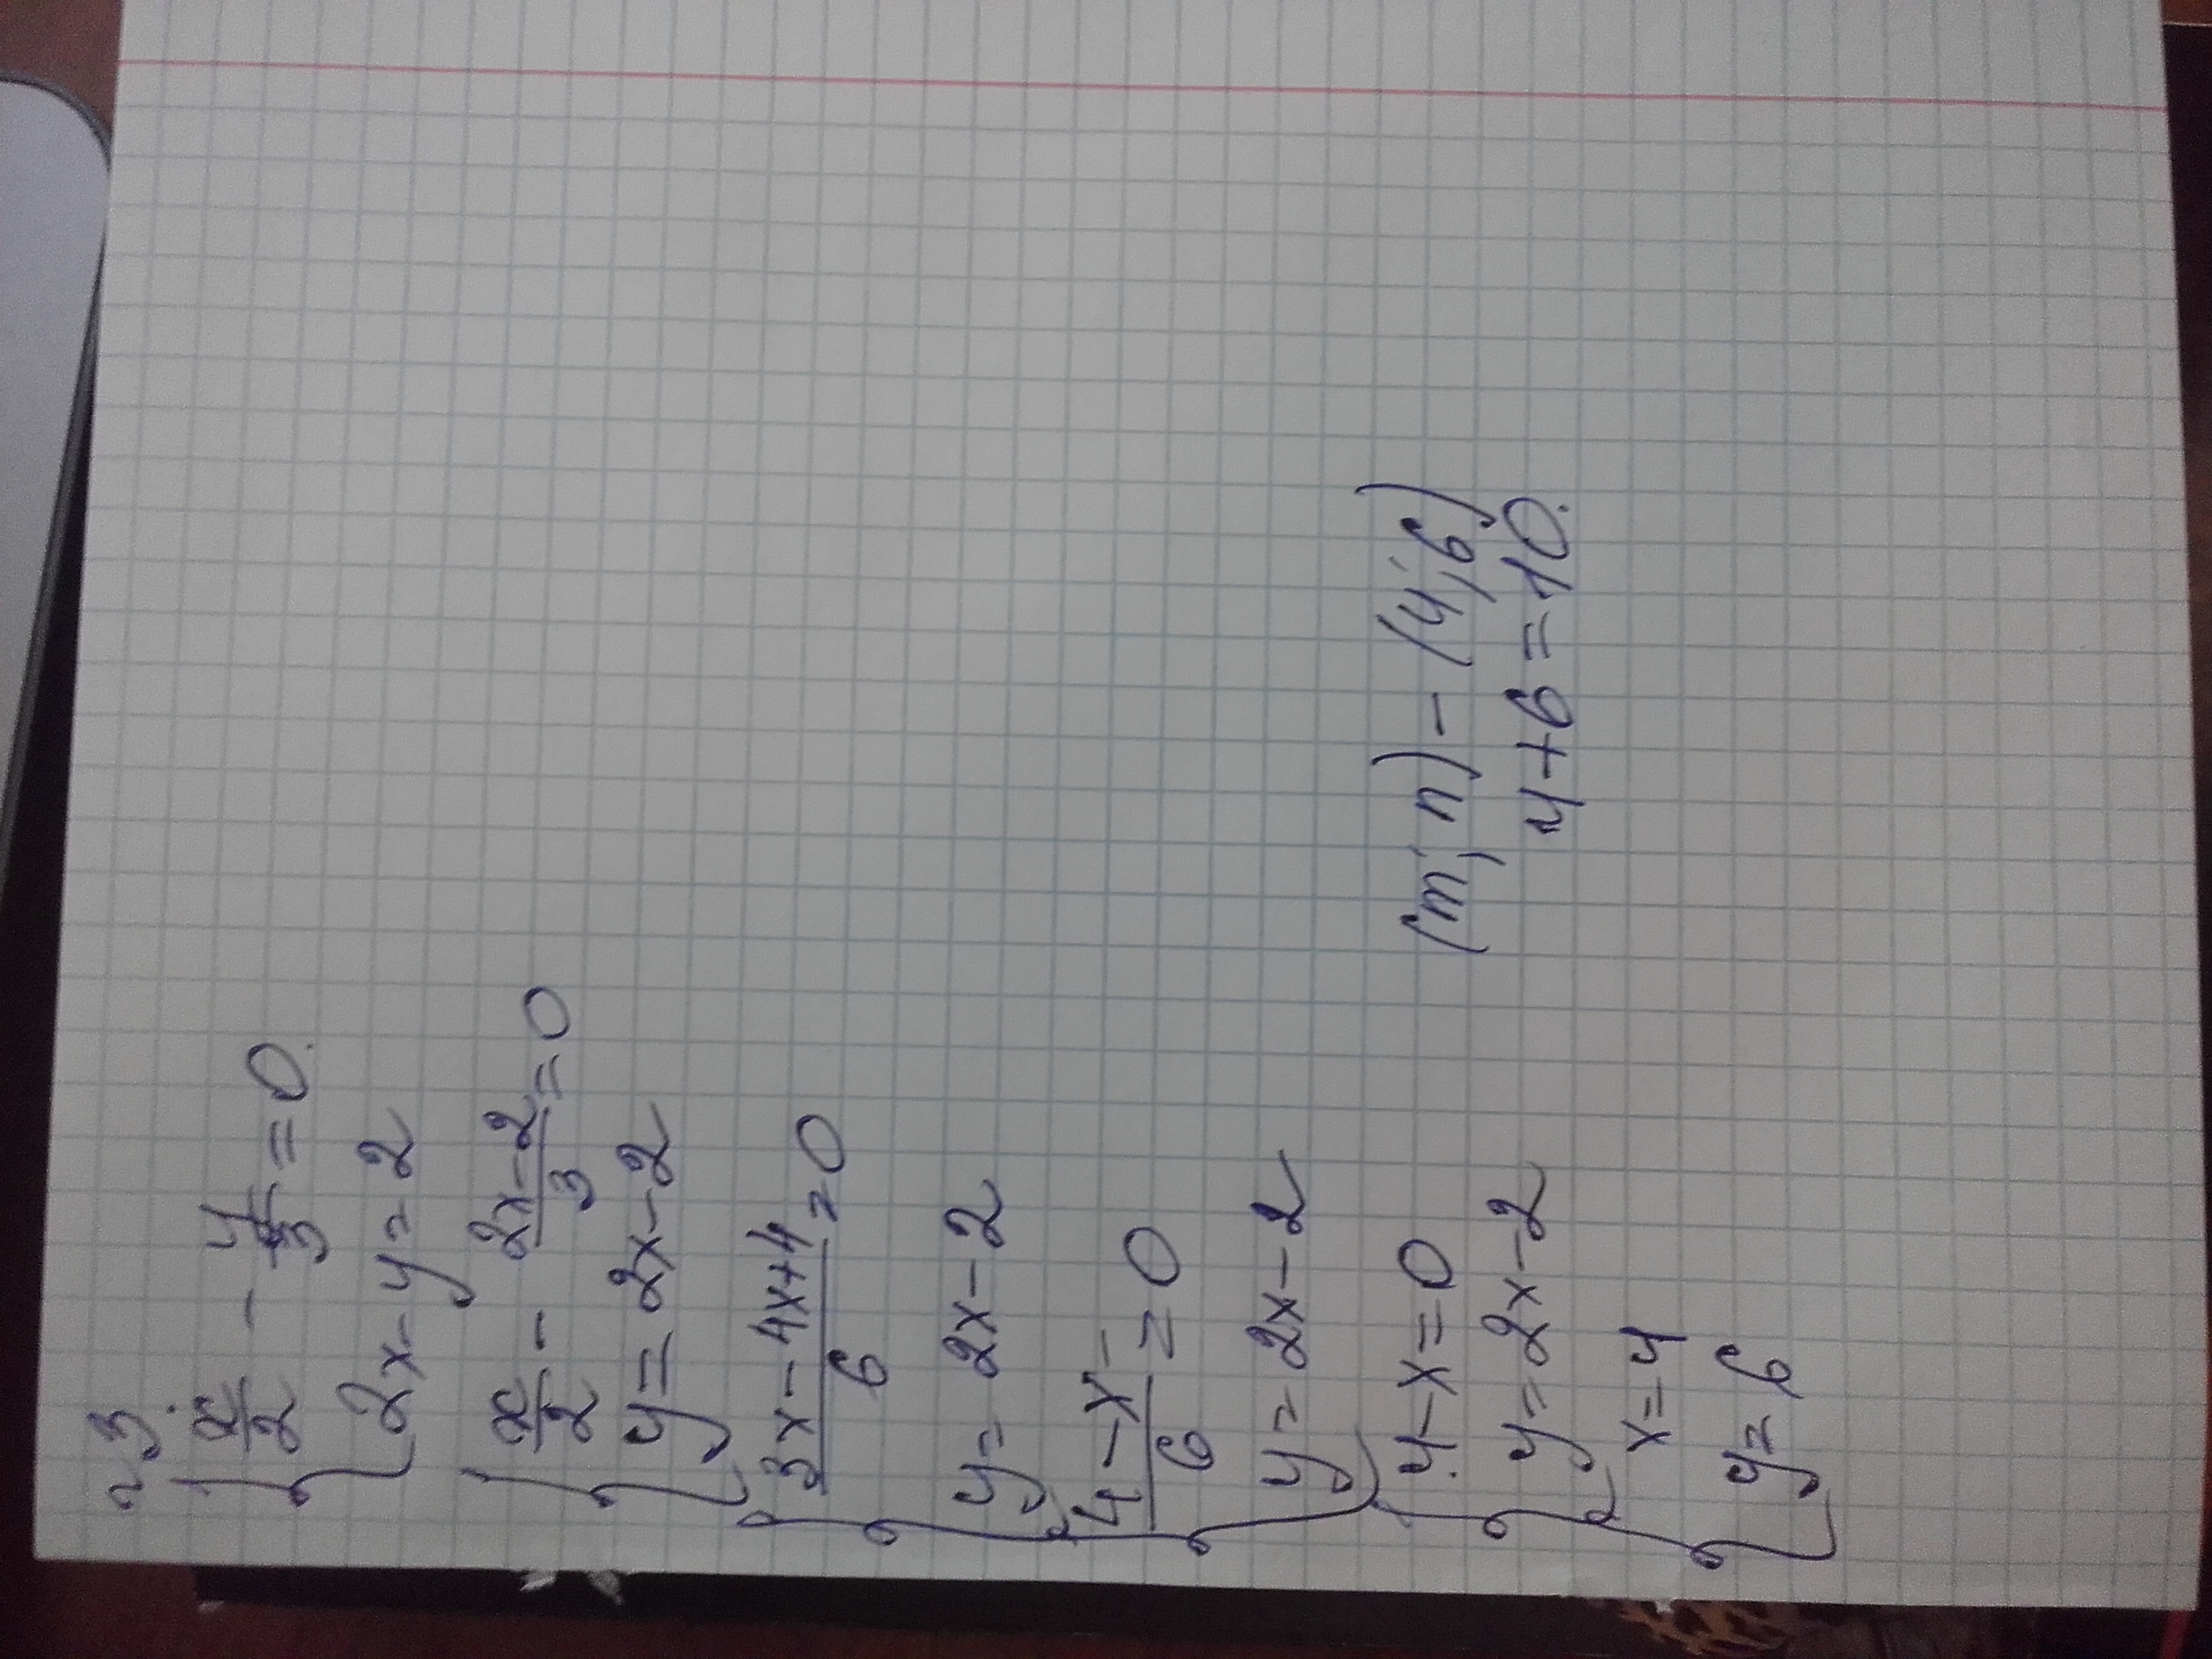 23.
x/2 - y/3 = 0.
2x - y = 2
x/2 - (2x - 2)/3 = 0
y = 2x - 2
(3x - 4x + 4)/6 = 0
y = 2x - 2
(4 - x)/6 = 0
y = 2x - 2
4 - x = 0
y = 2x - 2
x = 4
y = 6
(m; n) - (4; 6)
4 + 6 = 10.